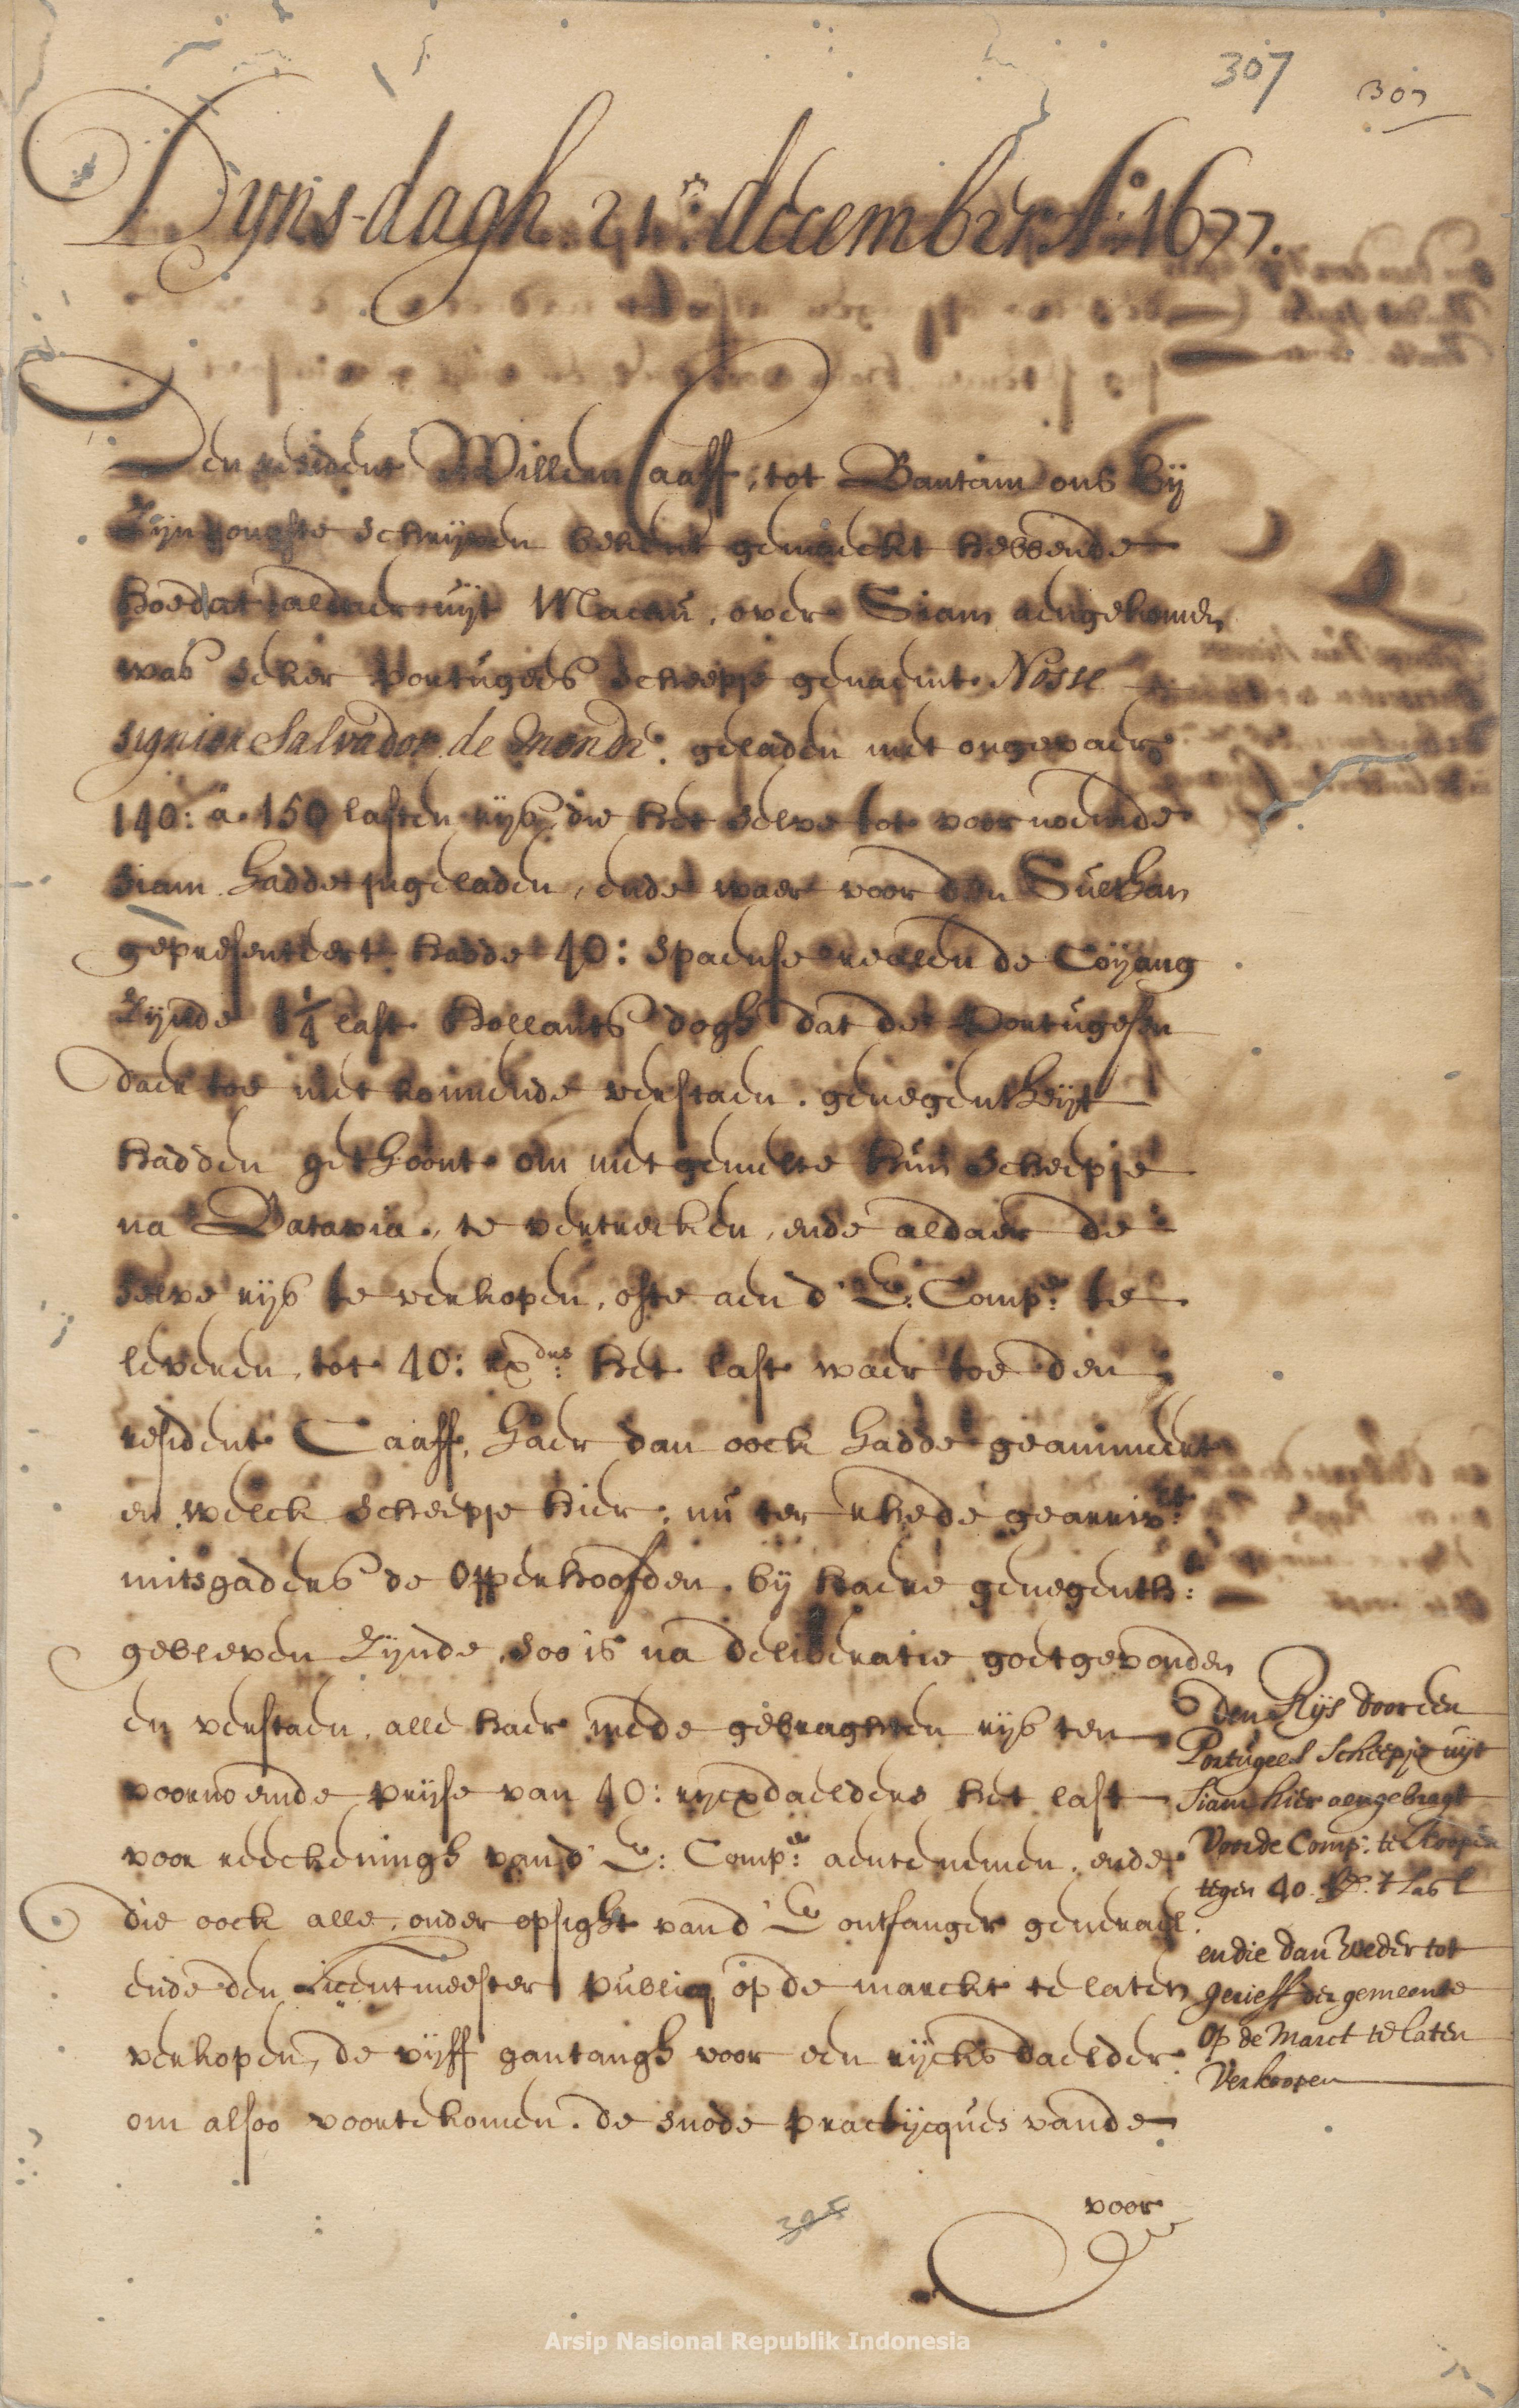 307
307
Dÿns-dagh 21:en december Ao: 1677.
Den resident Willem Caaff, tot Bantam ons bij
Zijn jongste schrijven bekent gemaeckt hebbende
hoedat aldaer uijt Macau, over Siam aengekomen
was seker Portugees scheepje genaemt Nosse
signior Salvador de Monde, geladen met ongevaer
140: a 150 lasten rijs, die het selve tot voornoemde
Siam hadde ingeladen, ende waer voor den Sulthan
gepresenteert hadde 40: spaense realen de Coijang
Zijnde 1¼ last Hollants dogh dat de Portugesen
daer toe niet konnende verstaen, genegentheijt
hadden gethoont om met gemelte hun scheepje
na Batavia, te vertrecken, ende aldaer de
selve rijs te verkopen, ofte aen d' E: Compe: te
leveren, tot 40: rxdrs: het last waer toe den
resident Caaff, haer dan oock hadde geanimeert
en welck scheepje hier, nu ter rhede gearrivt:
mitsgaders de Opperhoofden, bij haere genegenth:t
gebleven Zijnde, soo is na deliberatie goetgevonden
en verstaen, alle haer mede gebraghten rijs ten
voornoemde prijse van 40: rijcxdaelders het last
voor reeckeningh van d' E: Compe: aentenemen, ende
die oock alle, onder opsight van d' E ontfanger generael
ende den Licentmeester publicq op de marckt te laten
verkopen, de vijff gantangh voor een rijcksdaelder
om alsoo voortekomen, de snode practijcques vande
den Rijs door een
Portugees Scheepje uijt
Siam hier aengebragt
Voor de Comp: te koopen
tegen 40 Rx: 't Last
en die dan weder tot
gerieff der gemeente
op de Marct te laten
Verkoopen
voor
305
Arsip Nasional Republik Indonesia